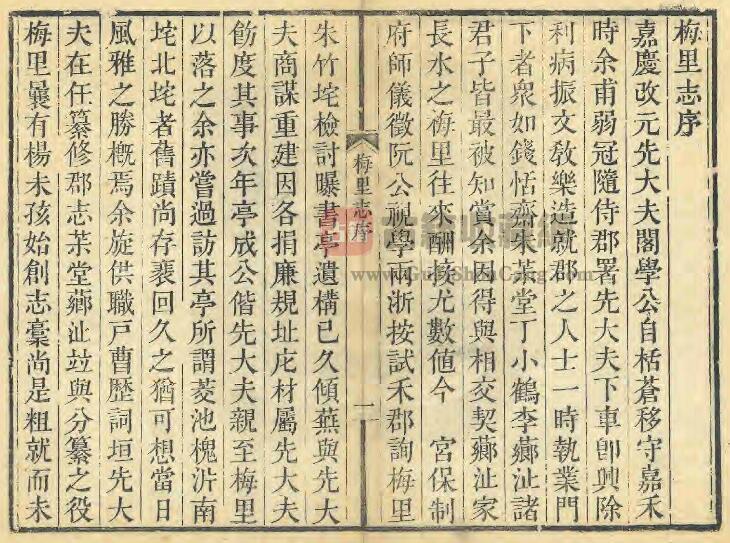 梅里志序
嘉慶改元先大夫閣學公自栝蒼移守嘉禾
時余甫弱冠隨侍郡署先大夫下車卽興除
利病振文敎樂造就郡之人士一時執業門
下者衆如錢恬齋朱茮堂丁小鶴李薌沚諸
君子皆最被知賞余因得與相交契薌沚家
長水之梅里往來酬接尤數值今 宮保制
府師儀徵阮公視學兩浙按試禾郡詢梅里
梅里志序
一
朱竹垞檢討曝書亭遺構已久傾蕪與先大
夫商謀重建因各捐廉規址庀材屬先大夫
飭度其事次年亭成公偕先大夫親至梅里
以落之余亦嘗過訪其亭所謂菱池槐沜南
垞北垞者舊蹟尚存裵回久之猶可想當日
風雅之勝槪焉余旋供職戸曹歴詞垣先大
夫在任纂修郡志茮堂薌沚竝與分纂之役
梅里曩有楊未孩始創志稾尚是粗就而未
www.GuJiShouCang.com